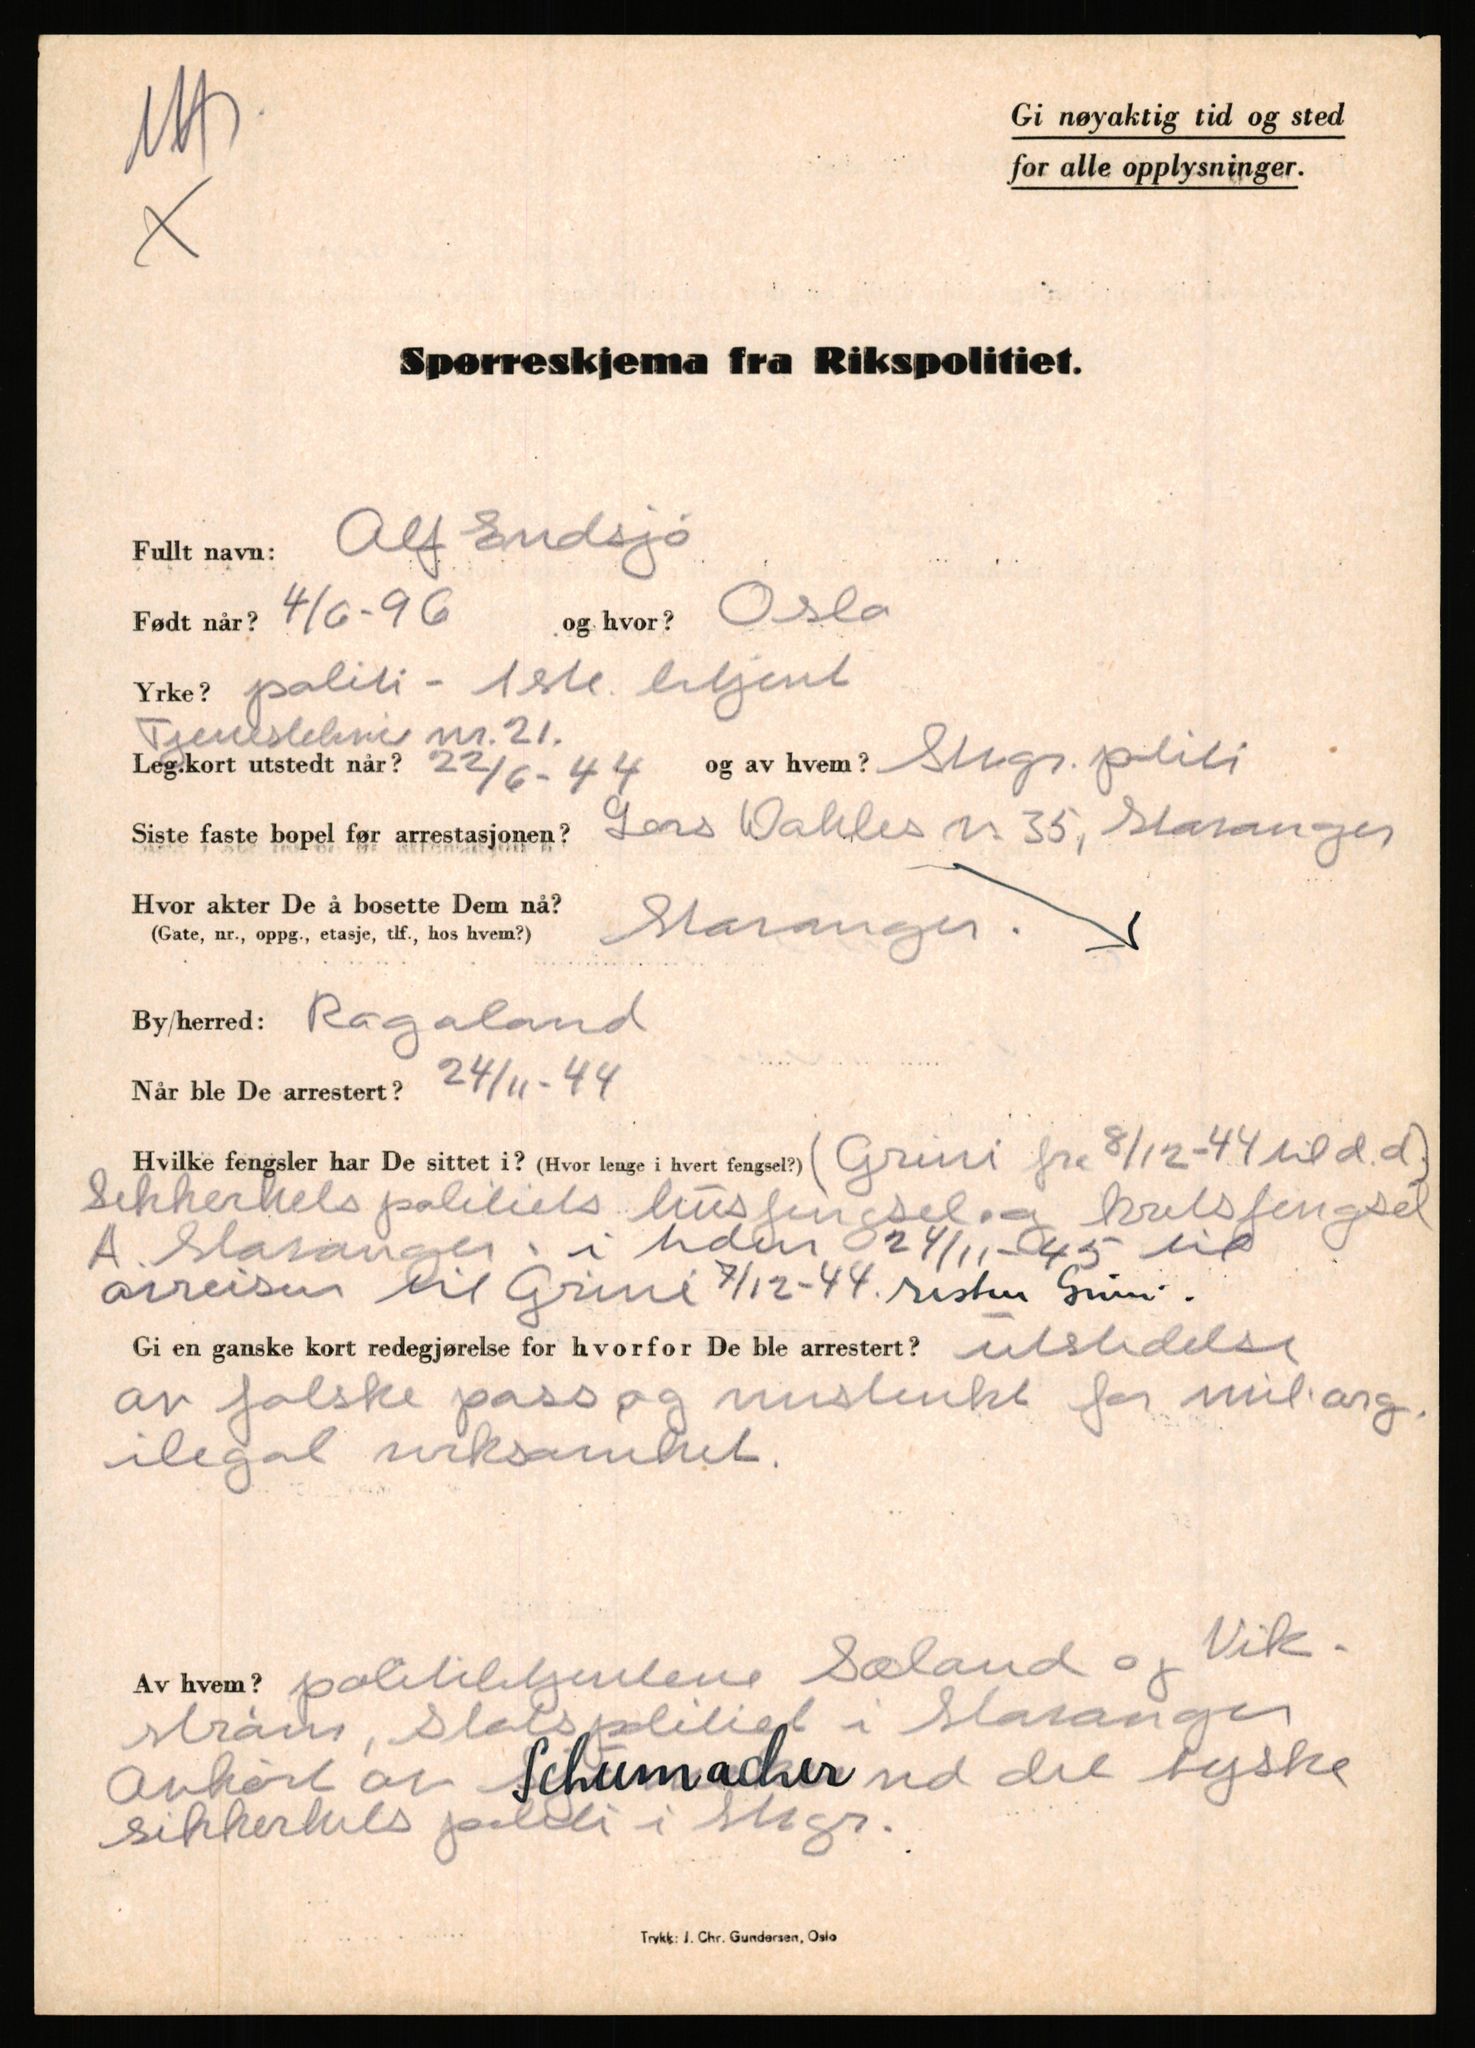 Gi nøyaktig tid og sted
for alle opplysninger.
X
Spørreskjema fra Rikspolitiet.
Fullt navn: Alf Endsjø
Født når? 4/6-96 og hvor? Oslo
Yrke? politi - 1ste. betjent
Tjenestebevis nr. 21.
Leg.kort utstedt når? 22/6-44 og av hvem? Stvgr. politi
Siste faste bopel før arrestasjonen? Lars Wahles v. 35, Stavanger
Hvor akter De å bosette Dem nå? Stavanger.
(Gate, nr., oppg., etasje, tlf., hos hvem?)
By/herred: Rogaland
Når ble De arrestert? 24/11-44
Hvilke fengsler har De sittet i? (Hvor lenge i hvert fengsel?) (Grini fra 8/12-44 til d.d.)
Sikkerhetspolitiets husfengsel og kretsfengsel
A Stavanger. i tiden 24/11-45 til
avreisen til Grini 7/12-44. resten Grini.
Gi en ganske kort redegjørelse for hvorfor De ble arrestert? utstedelse
av falske pass og mistenkt for mil. org.
ilegal virksomhet.
Av hvem? politibetjentene Sæland og Vik-
strøm, Statspolitiet i Stavanger
Avhørt av Schumacher ved det tyske
sikkerhets politi i Stvgr.
Trykk: J. Chr. Gundersen, Oslo